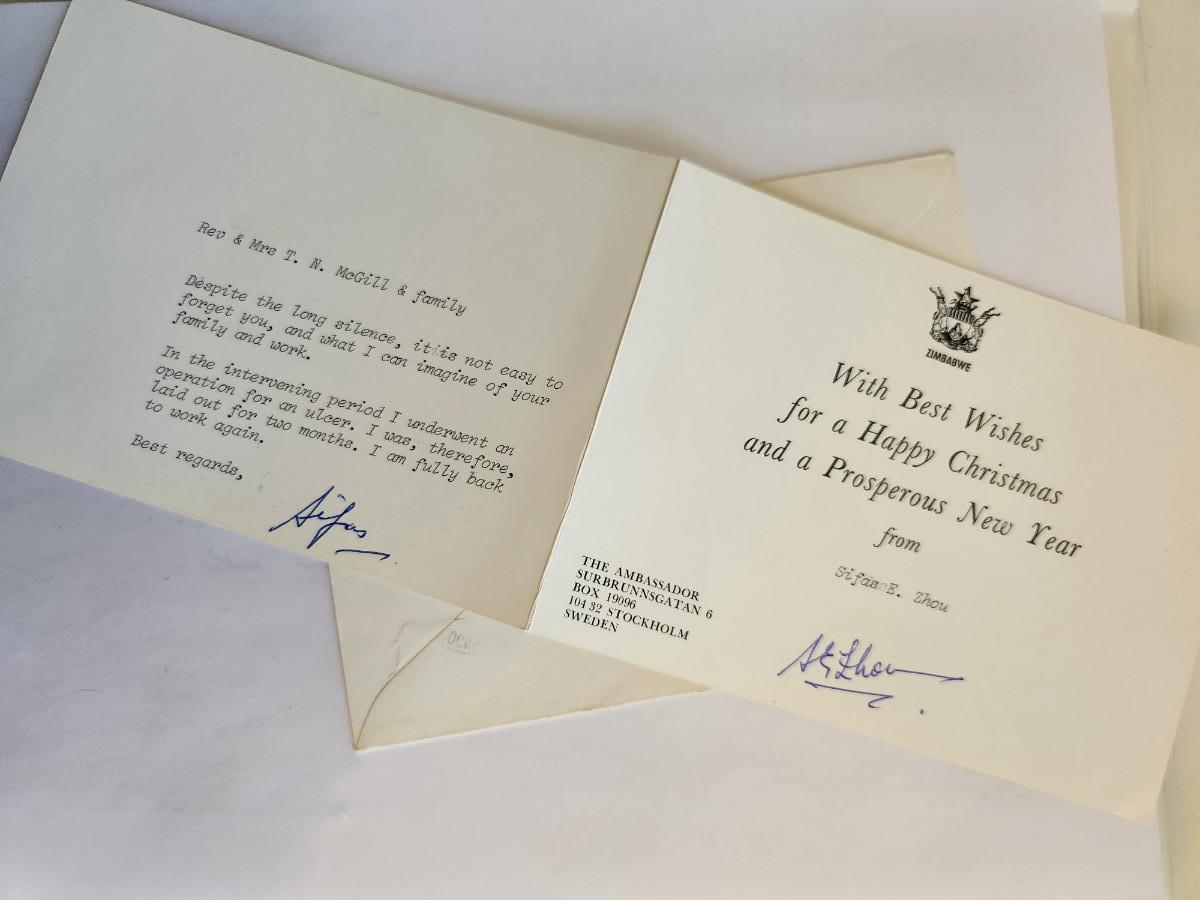 Rev & Mrs T. N. McGill & family
Despite the long silence, it is not easy to
forget you, and what I can imagine of your
family and work.
In the intervening period I underwent an
operation for an ulcer. I was, therefore,
laid out for two months. I am fully back
to work again.
Best regards,
Sifas
ZIMBABWE
With Best Wishes
for a Happy Christmas
and a Prosperous New Year
from
Sifas E. Zhou
S E Zhou
THE AMBASSADOR
SURBRUNNSGATAN 6
BOX 19096
104 32 STOCKHOLM
SWEDEN